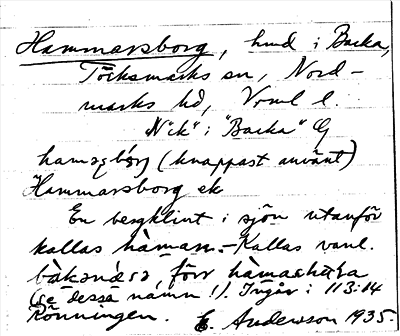 Hammarsborg, hmd i Backa,
Töcksmarks sn, Nord-
marks hd, Vrml l.
"Nck" i "Backa" G
(knappast använt)
Hammarsborg ek
En bergklint i sjön utanför
kallas Kallas vanl.
förr
(se dessa namn!). Ingår i 113:14
Rönningen. E. Andersson 1935.